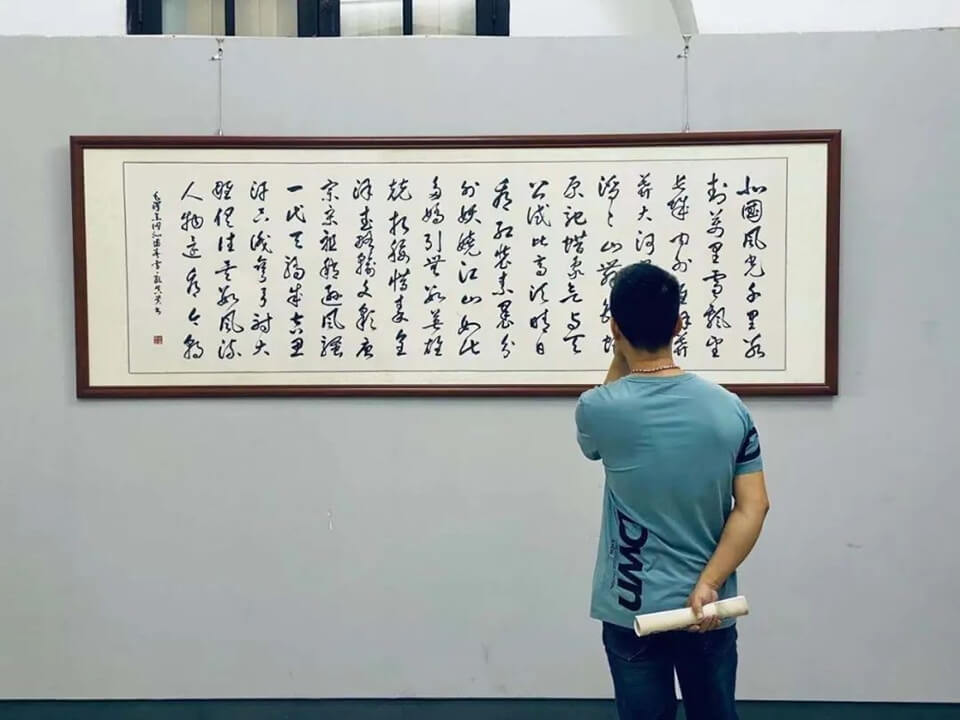 北國风光千里冰
封萬里雪飄望
长城内外惟餘莽
莽大河
滔滔山舞銀蛇
原驰蜡象欲与天
公试比高须晴日
看红装素裹分
外妖娆江山如此
多娇引无数英雄
竞折腰惜秦皇
汉武略输文采唐
宗宋祖稍逊风骚
一代天骄成吉思
汗只识弯弓射大
雕俱往矣数风流
人物还看今朝
毛泽东词沁园春雪
DWN